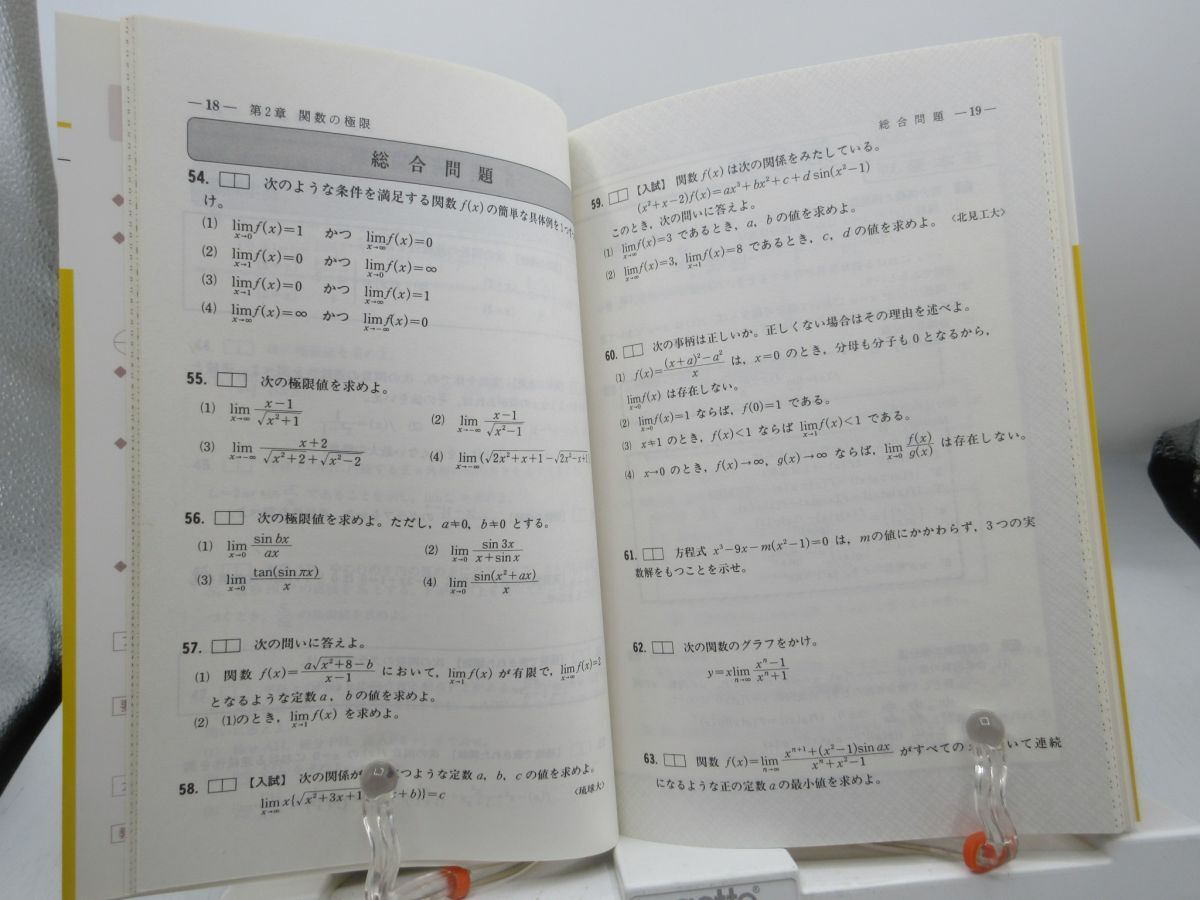 —18— 第2章 関数の極限
総合問題
54. 次のような条件を満足する関数 f(x) の簡単な具体例を1つ
け。
(1) lim_{x→0} f(x)=1 かつ lim_{x→∞} f(x)=0
(2) lim_{x→1} f(x)=0 かつ lim_{x→0} f(x)=∞
(3) lim_{x→1} f(x)=0 かつ lim_{x→∞} f(x)=1
(4) lim_{x→∞} f(x)=∞ かつ lim_{x→-∞} f(x)=0
55. 次の極限値を求めよ。
(1) lim_{x→∞} (x-1)/√(x²+1) (2) lim_{x→-∞} (x-1)/√(x²-1)
(3) lim_{x→-∞} (x+2)/(√(x²+2)+√(x²-2)) (4) lim_{x→-∞} (√(2x²+x+1)-√(2x²-x+1)
56. 次の極限値を求めよ。ただし，a≠0，b≠0 とする。
(1) lim_{x→0} sin bx/ax (2) lim_{x→0} sin 3x/(x+sin x)
(3) lim_{x→0} tan(sin πx)/x (4) lim_{x→0} sin(x²+ax)/x
57. 次の問いに答えよ。
(1) 関数 f(x)=(a√(x²+8)-b)/(x-1) において，lim_{x→1} f(x) が有限で，lim_{x→∞} f(x)=2
となるような定数 a，b の値を求めよ。
(2) (1)のとき，lim_{x→1} f(x) を求めよ。
58. 【入試】 次の関係が つような定数 a，b，c の値を求めよ。
lim_{x→∞} x{√(x²+3x+1) +b)}=c 〈琉球大〉
総合問題 —19—
59. 【入試】 関数 f(x) は次の関係をみたしている。
(x²+x-2)f(x)=ax³+bx²+c+d sin(x²-1)
このとき，次の問いに答えよ。
(1) lim_{x→∞} f(x)=3 であるとき，a，b の値を求めよ。
(2) lim_{x→∞} f(x)=3，lim_{x→1} f(x)=8 であるとき，c，d の値を求めよ。 〈北見工大〉
60. 次の事柄は正しいか。正しくない場合はその理由を述べよ。
(1) f(x)=((x+a)²-a²)/x は，x=0 のとき，分母も分子も 0 となるから，
lim_{x→0} f(x) は存在しない。
(2) lim_{x→0} f(x)=1 ならば，f(0)=1 である。
(3) x≠1 のとき，f(x)<1 ならば lim_{x→1} f(x)<1 である。
(4) x→0 のとき，f(x)→∞，g(x)→∞ ならば，lim_{x→0} f(x)/g(x) は存在しない。
61. 方程式 x³-9x-m(x²-1)=0 は，m の値にかかわらず，3つの実
数解をもつことを示せ。
62. 次の関数のグラフをかけ。
y=x lim_{n→∞} (xⁿ-1)/(xⁿ+1)
63. 関数 f(x)=lim_{n→∞} (x^{n+1}+(x²-1)sin ax)/(xⁿ+x²-1) がすべての いて連続
になるような正の定数 a の最小値を求めよ。